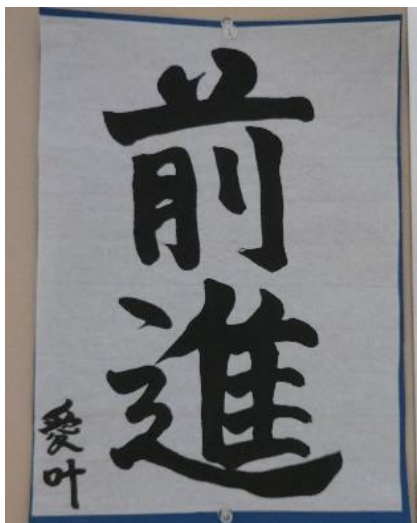 前進
愛叶